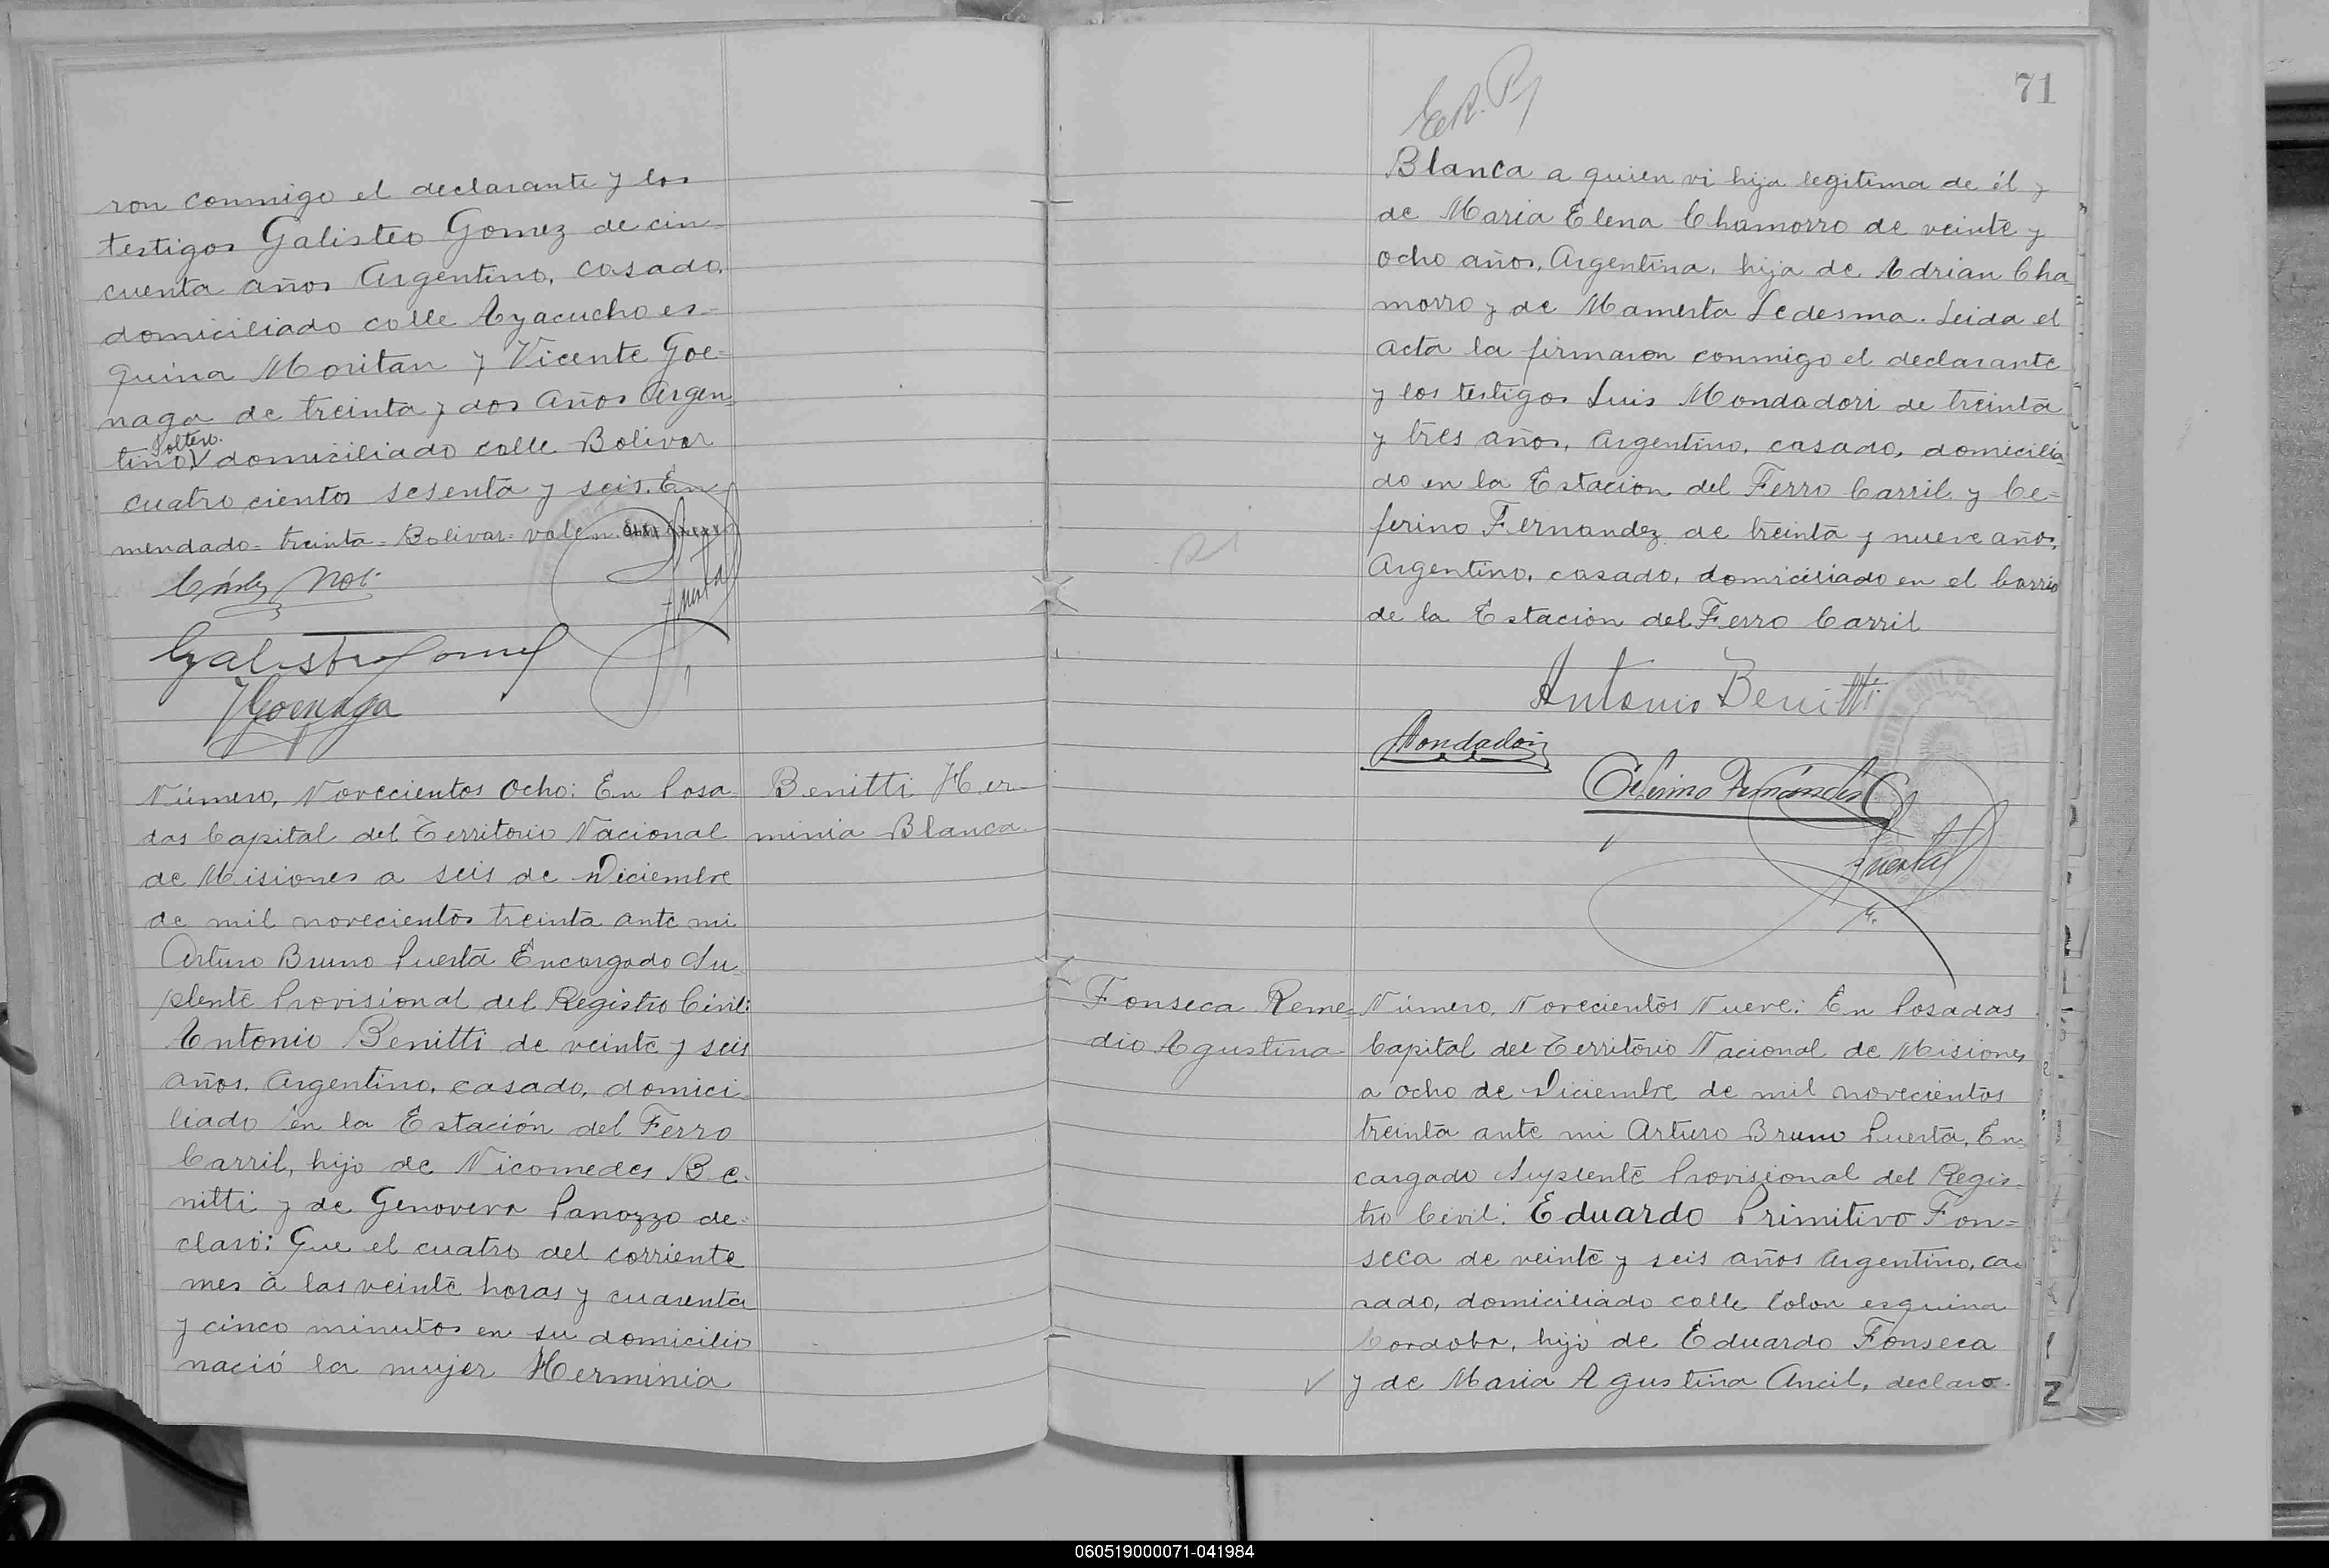 ron conmigo el declarante y los
testigos Galisteo Gomez de cin-
cuenta años Argentino, casado,
domiciliado calle Ayacucho es-
quina Moritan y Vicente Goe-
naga de treinta y dos años Argen-
Soltero.
tino V domiciliado calle Bolivar
cuatro cientos sesenta y seis. En-
mendado = treinta = Bolivar = valen.
Galisteo Gomez
VGoenaga
Número, Novecientos Ocho: En Posa-
das Capital del Territorio Nacional
de Misiones a seis de Diciembre
de mil novecientos treinta ante mi
Arturo Bruno Puerta Encargado Su-
plente Provisional del Registro Civil:
Antonio Benitti de veinte y seis
años, Argentino, casado, domici-
liado en la Estación del Ferro
Carril, hijo de Nicomedes Be-
nitti y de Genoveva Panozzo de-
claró: Que el cuatro del corriente
mes á las veinte horas y cuarenta
y cinco minutos en su domicilio
nació la mujer Herminia
Benitti Her-
minia Blanca.
71
Blanca a quien vi hija legitima de él y
de Maria Elena Chamorro de veinte y
ocho años, Argentina, hija de Adrian Cha-
morro y de Mamerta Ledesma. Leida el
acta la firmaron conmigo el declarante
y los testigos Luis Mondadori de treinta
y tres años, Argentino, casado, domicilia-
do en la Estacion del Ferro Carril y Ce-
ferino Fernandez de treinta y nueve años,
Argentino, casado, domiciliado en el barrio
de la Estación del Ferro Carril
Antonio Benitti
Mondadori
Ceferino Fernández
Puerta
Fonseca Reme-
dio Agustina
Número, Novecientos Nueve: En Posadas
Capital del Territorio Nacional de Misiones
a ocho de Diciembre de mil novecientos
treinta ante mi Arturo Bruno Puerta, En-
cargado Suplente Provisional del Regis-
tro Civil: Eduardo Primitivo Fon-
seca de veinte y seis años Argentino, ca-
sado, domiciliado calle Colon esquina
Cordoba, hijo de Eduardo Fonseca
y de Maria Agustina Ancil, declaro
Z
060519000071-041984